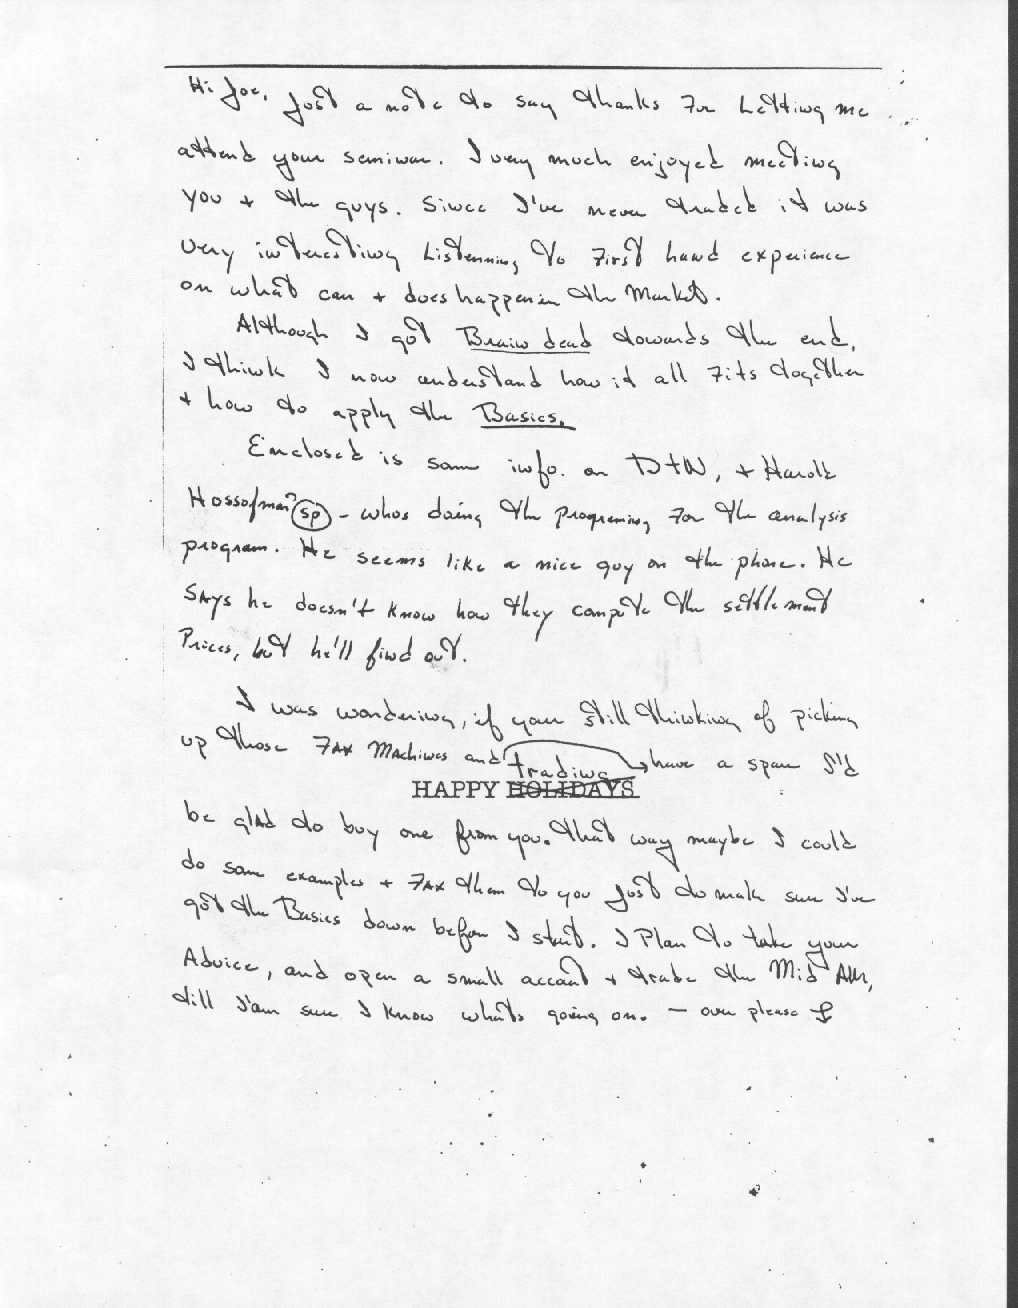 Hi Joe, Just a note to say thanks For Letting me
attend your seminar. I very much enjoyed meeting
you + the guys. Since I've never traded it was
Very interesting Listenning To First hand experience
on what can + does happen in the Market.
Although I got Brain dead towards the end,
I think I now understand how it all Fits together
+ how to apply the Basics.
Enclosed is some info. on DTN, + Harold
Hossofman? sp - whos doing the programing For the analysis
program. He seems like a nice guy on the phone. He
SAys he doesn't Know how they compute the settlement
Prices, but he'll find out.
I was wondering, if your still thinking of picking
up those FAX MAchines and have a spare I'd
trading
HAPPY HOLIDAYS
be glAd to buy one from you. that way maybe I could
do some examples + FAX them to you Just to make sure I've
got the Basics down before I start. I Plan to take your
Advice, and open a small account + trade the Mid Am,
till I'am sure I Know what's going on. - over please